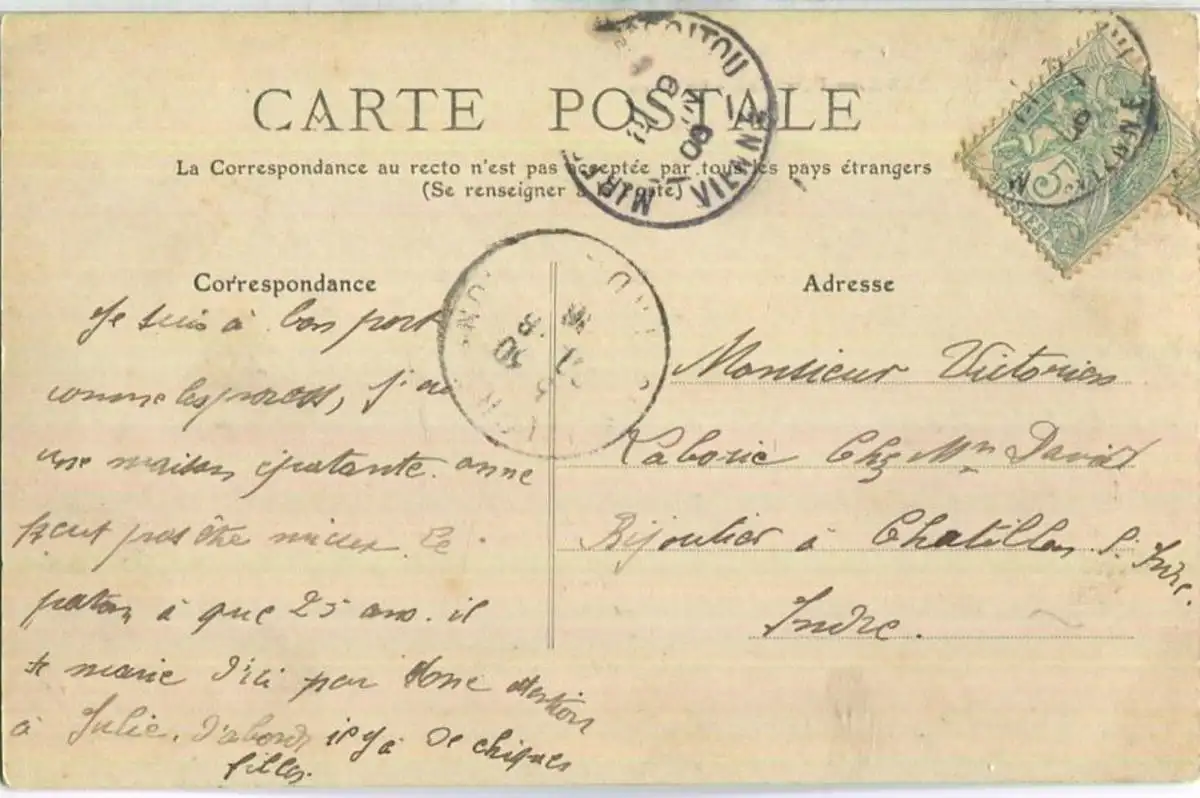 CARTE POSTALE
La Correspondance au recto n'est pas acceptée par tous les pays étrangers
(Se renseigner à la Poste)
MIREBEAU-DU-POITOU
VIENNE
Correspondance
Je suis à bon port
comme les poreess, j'ai
une maison épatante. onne
peut pas être mieux. Le
patron à que 25 ans. il
se marie d'ici peu donc attention
à Julie. D'abord il y à de chiques
filles.
Adresse
Monsieur Victorien
Laborie Chz Mr David
Bijoutier à Chatillon s. Indre.
Indre.
5